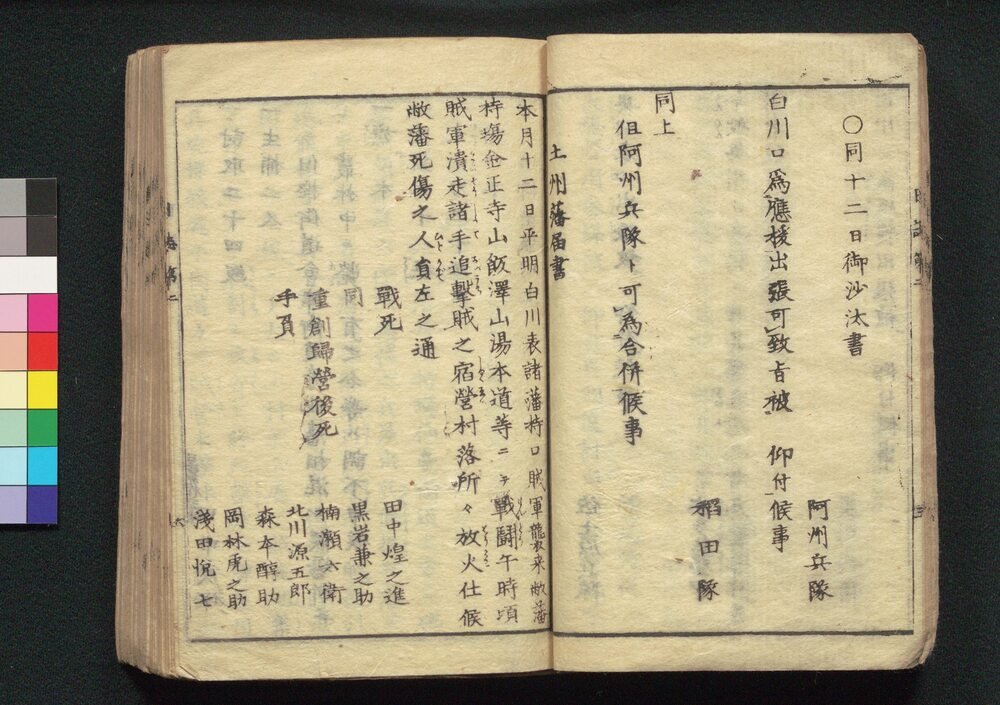 ○同十二日御沙汰書
阿州兵隊
白川口爲應援出張可致旨被 仰付候事
稲田隊
同上
但阿州兵隊ト可為合併候事
土州藩届書
本月十二日平明白川表諸藩持口賊軍襲来敝藩
持場金正寺山飯澤山湯本道等ニテ戰鬪午時頃
賊軍潰走諸手追擊賊之宿營村落所々放火仕候
敝藩死傷之人員左之通
戰死 田中煌之進
同 黒岩兼之助
重創歸營後死 楠瀬六衛
手負 北川源五郎
森本醇助
岡林虎之助
淺田悦七